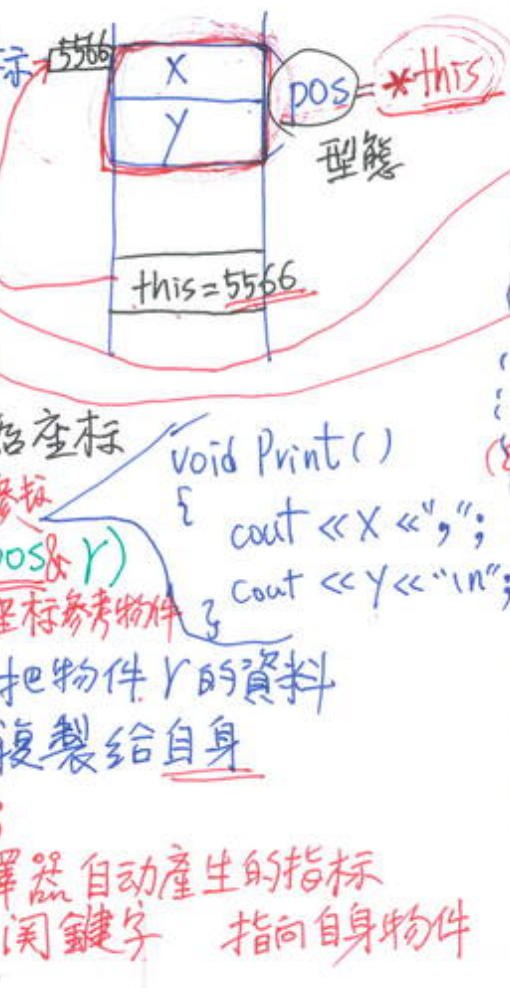 标 5566 X pos = *this
Y 型態
this = 5566
座标
void Print()
{
cout << X << ",";
pos& r)
cout << Y << "\n";
座标参考物件 }
把物件 r 的資料
複製給自身
譯器自动產生的指标
関鍵字 指向自身物件